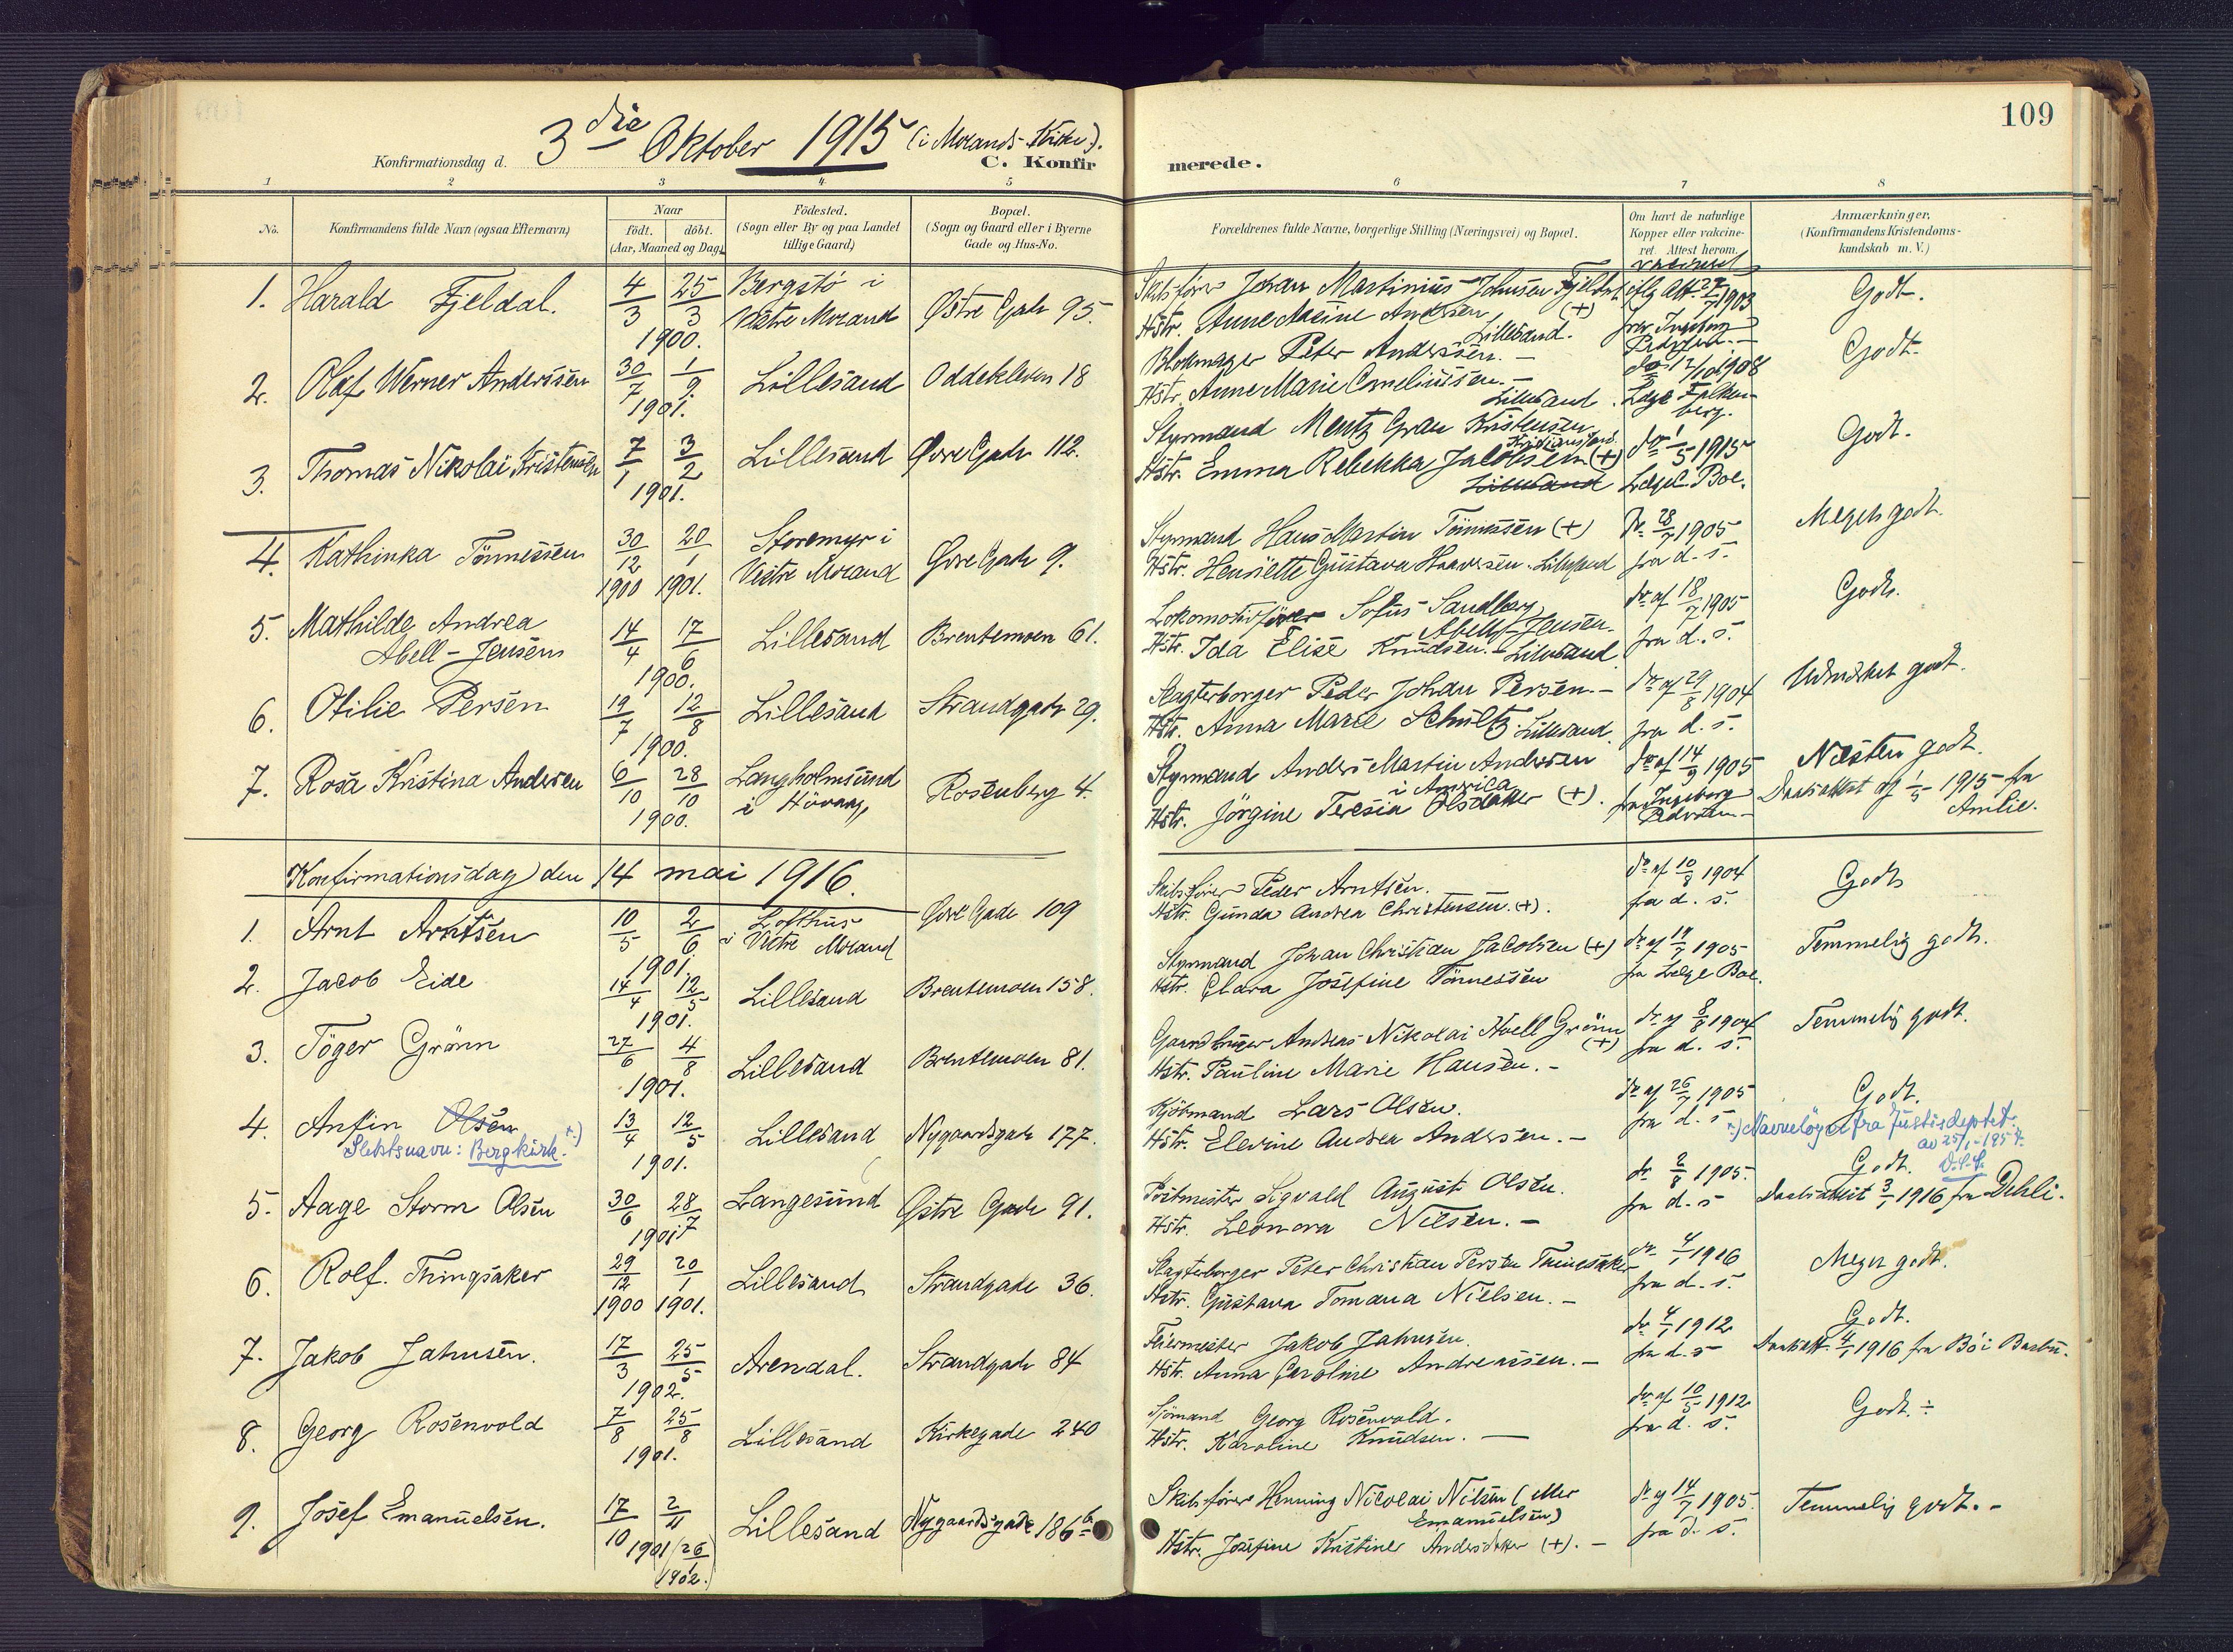 109
Konfirmationsdag d. 3die Oktober 1915 (i Moland-Kirke).
C. Konfirmerede.
1 2 3 4 5 6 7 8
No.
Konfirmandens fulde Navn (ogsaa Efternavn)
Naar
födt. döbt.
(Aar, Maaned og Dag)
Födested.
(Sogn eller By og paa Landet
tillige Gaard)
Bopæl.
(Sogn og Gaard eller i Byerne
Gade og Hus-No.
Forældrenes fulde Navne, borgerlige Stilling (Næringsvei) og Bopæl.
Om havt de naturlige
Kopper eller vakcine-
ret. Attest herom.
Anmærkninger,
(Konfirmandens Kristendoms-
kundskab m. V.)
1. Harald Fjeldal. 4/3 25/3 1900. Bergstö i Vestre Moland Østre Gade 95.
Skibsförer Johan Martinius Johnsen Fjeldal
Hstr. Anne Meine Andersen (+) Lillesand.
1903 fra Ingeborg
Godt.
2. Olaf Werner Anderssen 30/7 1/9 1901. Lillesand Oddekleven 18
Blokmager Peter Anderssen. -
Hstr. Anne Marie Corneliussen. - Lillesand.
do 12/10 1908 Læge Falkenberg.
Godt.
3. Thomas Nikolai Kristensen 7/1 3/2 1901. Lillesand Øvre Gade 112.
Styrmand Mentz Grau Kristensen Kristiansand.
Hstr. Emma Rebekka Jacobsen (+) Lillesand
do 1/5 1915 Læge C. Boe.
Godt.
4. Kathinka Tönnessen 30/12 1900 20/1 1901. Storemyr i Vestre Moland Øvre Gade 9.
Styrmand Hans Martin Tönnessen (+)
Hstr. Henriette Gustava Haavesen. Lillesand
Do. 28/7 1905 fra d. s.
Meget godt.
5. Mathilde Andrea Abell-Jensen 14/4 17/6 1900. Lillesand Brentemoen 61.
Lokomotivförer Sofus Sandberg Abell-Jensen.
Hstr. Ida Elise Knudsen. - Lillesand
do af 18/7 1905 fra d. s.
Godt.
6. Otilie Persen 19/7 12/8 1900. Lillesand Strandgade 29.
Slagterborger Peder Johan Persen. -
Hstr. Anna Marie Schultz. Lillesand.
do af 29/8 1904 fra d. s.
Udmerket godt.
7. Rosa Kristina Andersen 6/10 28/10 1900. Langholmsund i Hövaag, Rosenberg 4.
Styrmand Anders Martin Andersen i America
Hstr. Jörgine Teresia Olsdatter (+).
do af 14/9 1905 fra Ingeborg
Næsten godt.
Daabsattest af 1/5 1915 fra Amlie.
Konfirmationsdag den 14 mai 1916.
1. Arnt Arntsen 10/5 2/6 1901. Lofthus i Vestre Moland Øvre Gade 109
Skibsförer Peder Arntsen.
Hstr. Gunda Andrea Christensen. (+).
do af 10/8 1904 fra d. s.
Godt
2. Jacob Eide 14/4 12/5 1901. Lillesand Brentemoen 158.
Styrmand Johan Christian Jacobsen (+)
Hstr. Clara Josefine Tönnessen
do af 19/7 1905 fra Læge Boe.
Temmelig godt.
3. Töger Grönn 27/6 4/8 1901. Lillesand Brentemoen 81.
Gaardbruger Andreas Nikolai Hoell Grönn (+)
Hstr. Pauline Marie Hansen. -
do af 8/8 1904 fra d. s.
Temmelig godt.
4. Anfin Olsen 13/4 12/5 1901. Lillesand Nygaardsgade 177.
Slektsnavn: Bergkirk. x)
Kjöbmand Lars Olsen.
Hstr. Elevine Andrea Andersen. -
do af 26/7 1905 fra d. s
Godt.
x) Navnelöyve fra Justisdeptet.
av 25/1-1954.
5. Aage Storm Olsen 30/6 28/7 1901 Langesund Østre Gade 91.
Postmester Sigvald August Olsen.
Hstr. Leonora Nilsen. -
do 2/8 1905. fra d. s
Godt.
Daabsattest 3/1 1916 fra Dehli.
6. Rolf. Thingsaker 29/12 1900 20/1 1901. Lillesand Strandgade 36.
Slagterborger Peter Christian Persen Thingsaker
Hstr. Gustava Tomana Nielsen. -
do 4/1 1916 fra d. s.
Meget godt.
7. Jakob Jahnsen. 17/3 25/5 1902. Arendal. Strandgade 84
Feiermester Jakob Jahnsen.
Hstr. Anna Caroline Andreassen. -
do 4/1 1912 fra d. s
Godt.
Daabsatt. 4/1 1916 fra Bö i Barbu.
8. Georg Rosenvold 7/8 25/8 1901. Lillesand Kirkegade 240
Sjömand Georg Rosenvold.
Hstr. Karoline Knudsen. -
do af 10/5 1912 fra d. s.
Godt. ÷
9. Josef Emanuelsen. 17/10 2/11 1901 (26/1 1902.) Lillesand Nygaardsgade 186 b
Skibsförer Henning Nicolai Nilsen (eller Emanuelsen)
Hstr. Josefine Kristine Andersdatter (+). -
do af 14/7 1905. fra d. s.
Temmelig godt. -